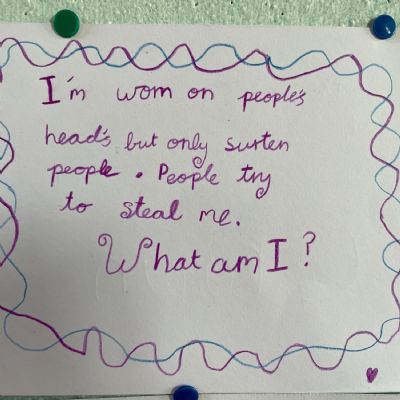 I'm worn on people's
head's but only surten
people. People try
to steal me.
What am I?